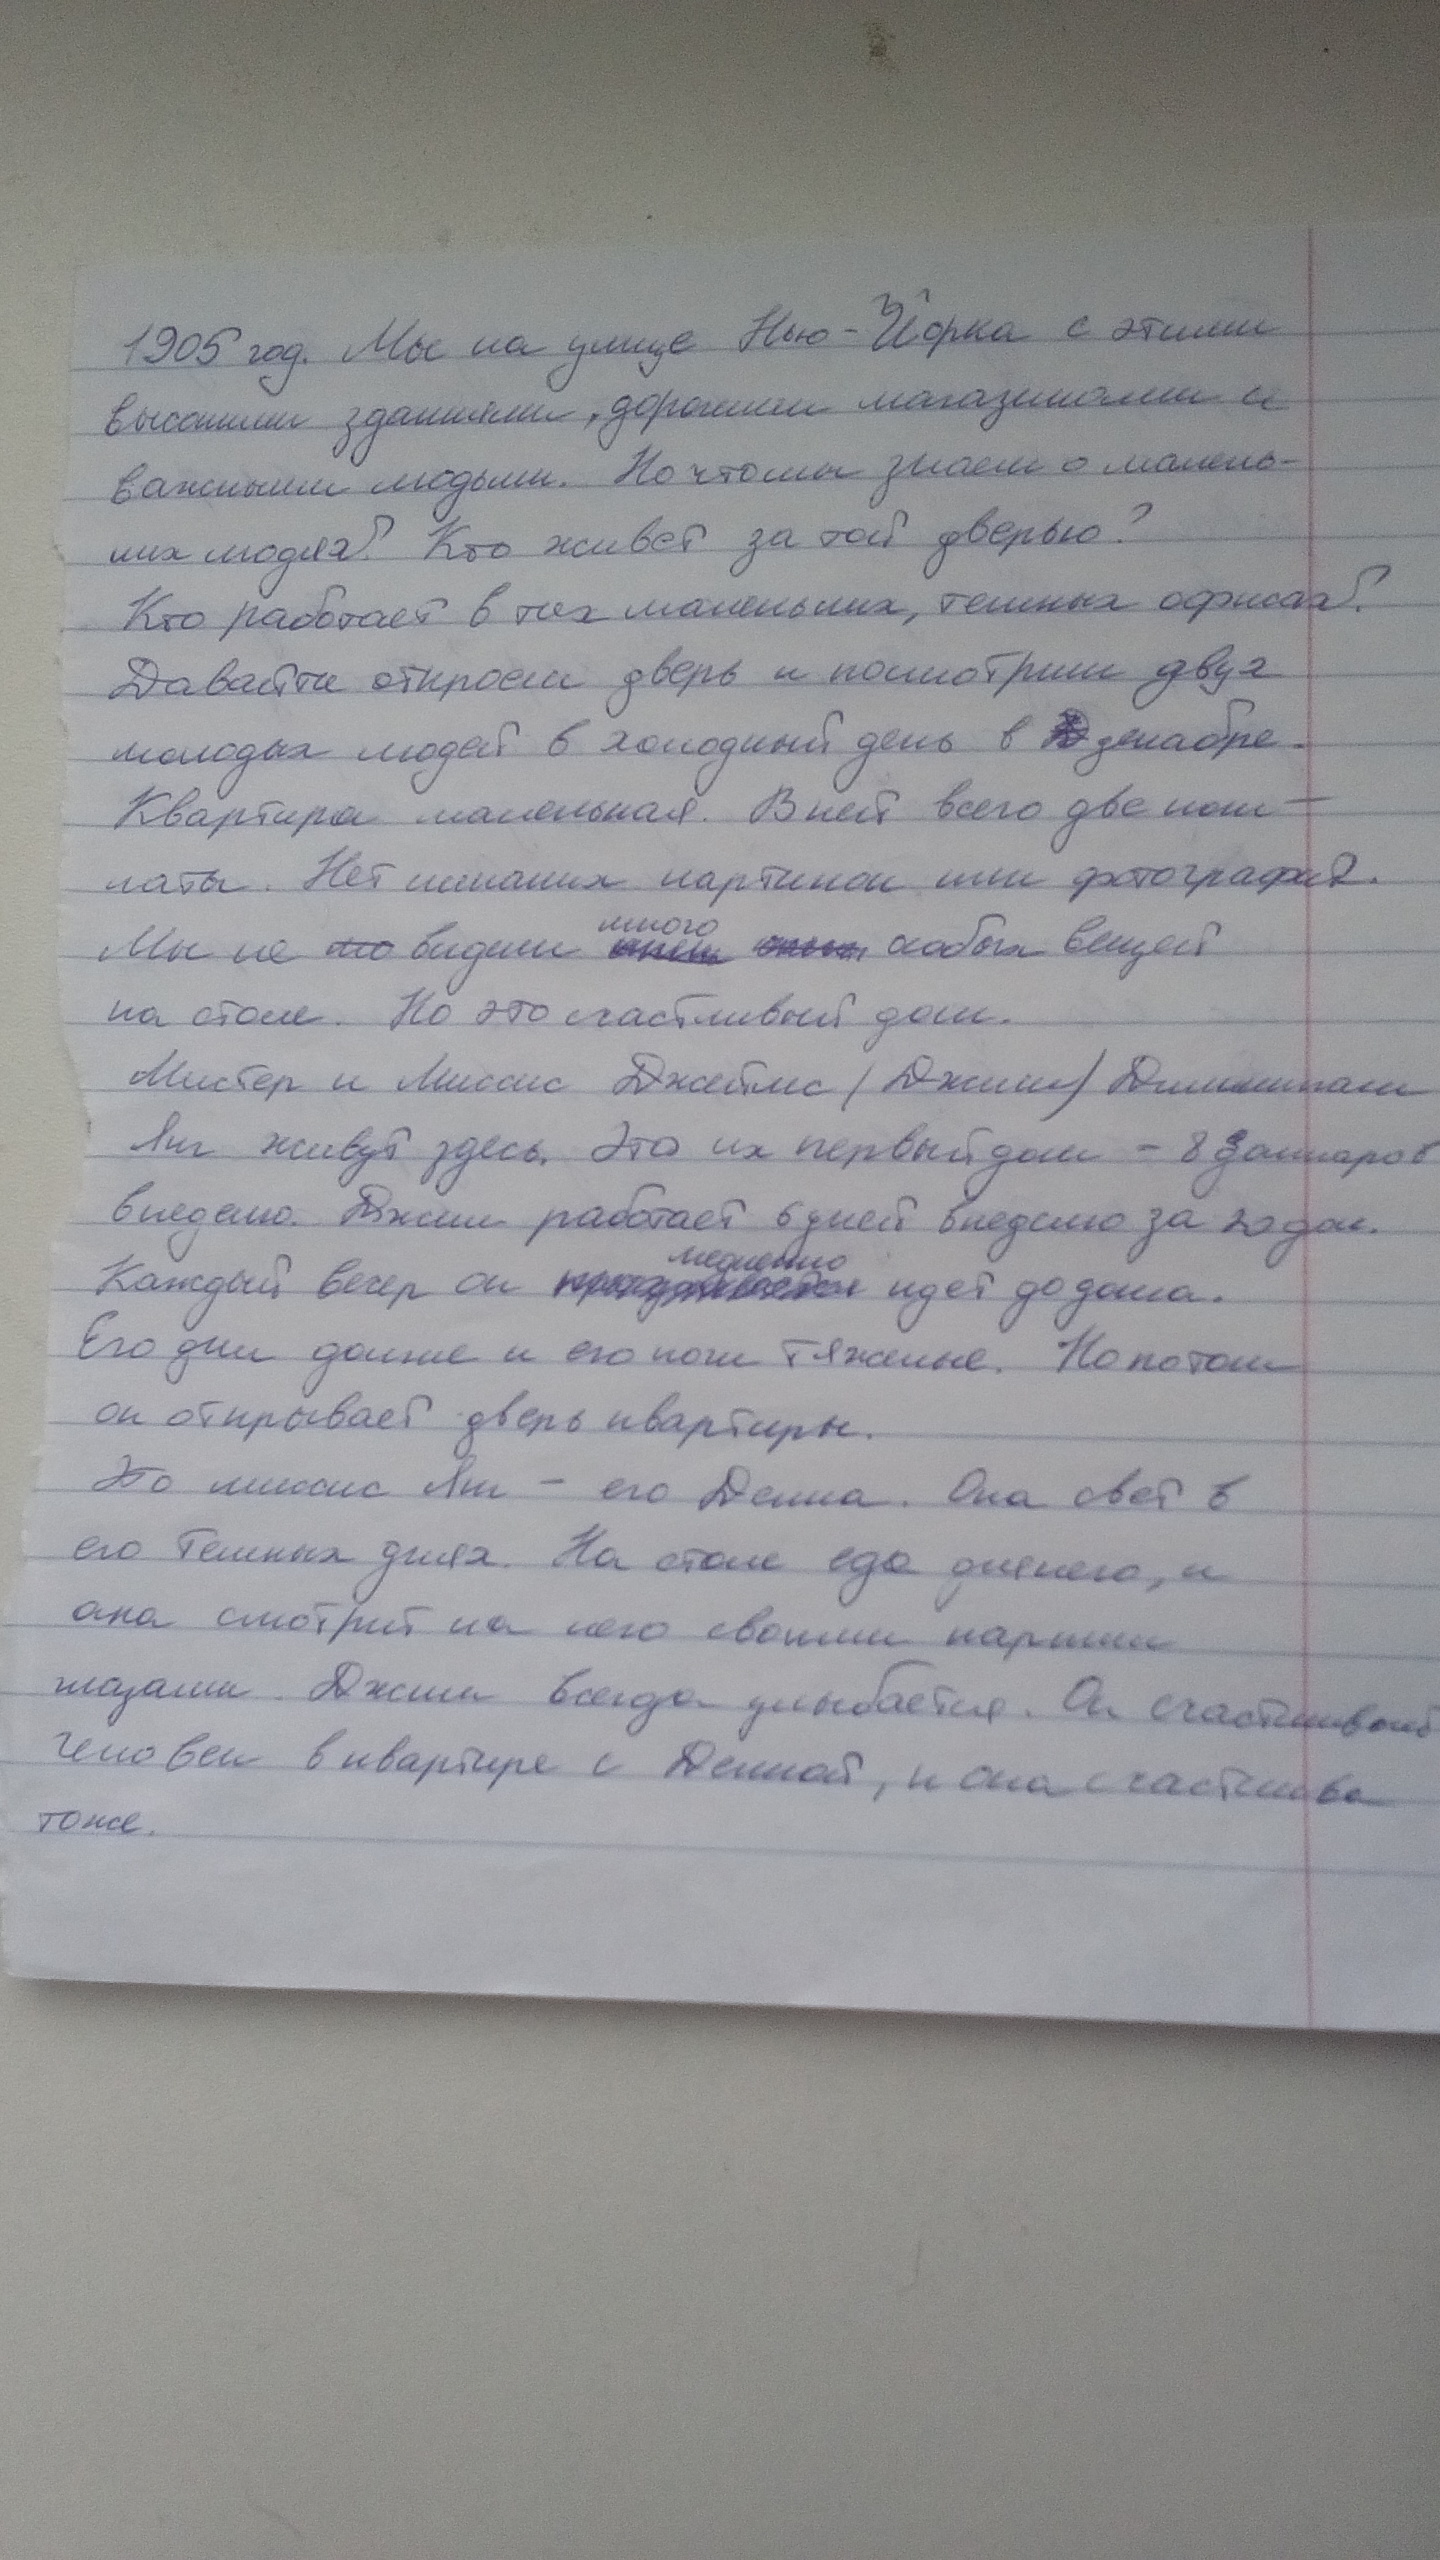 1905 год. Мы на улице Нью-Йорка с этими
высокими зданиями, дорогими магазинами и
важными людьми. Но что мы знаем о малень-
ких людях? Кто живет за той дверью?
Кто работает в тех маленьких, темных офисах?
Давайте откроем дверь и посмотрим двух
молодых людей в холодный день в декабре.
Квартира маленькая. В ней всего две ком-
наты. Нет никаких картинок или фотографий.
Мы не видим много особых вещей
на столе. Но это счастливый дом.
Мистер и Миссис Джеймс (Джим) Диллингам
Янг живут здесь. Это их первый дом - 8 долларов
в неделю. Джим работает 6 дней в неделю за 20 дол.
Каждый вечер он медленно идет до дома.
Его дни долгие и его ноги тяжелые. Но потом
он открывает дверь квартиры.
Это миссис Янг - его Делла. Она свет в
его темных днях. На столе еда для него, и
она смотрит на него своими карими
глазами. Джим всегда улыбается. Он счастливый
человек в квартире с Деллой, и она счастлива
тоже.